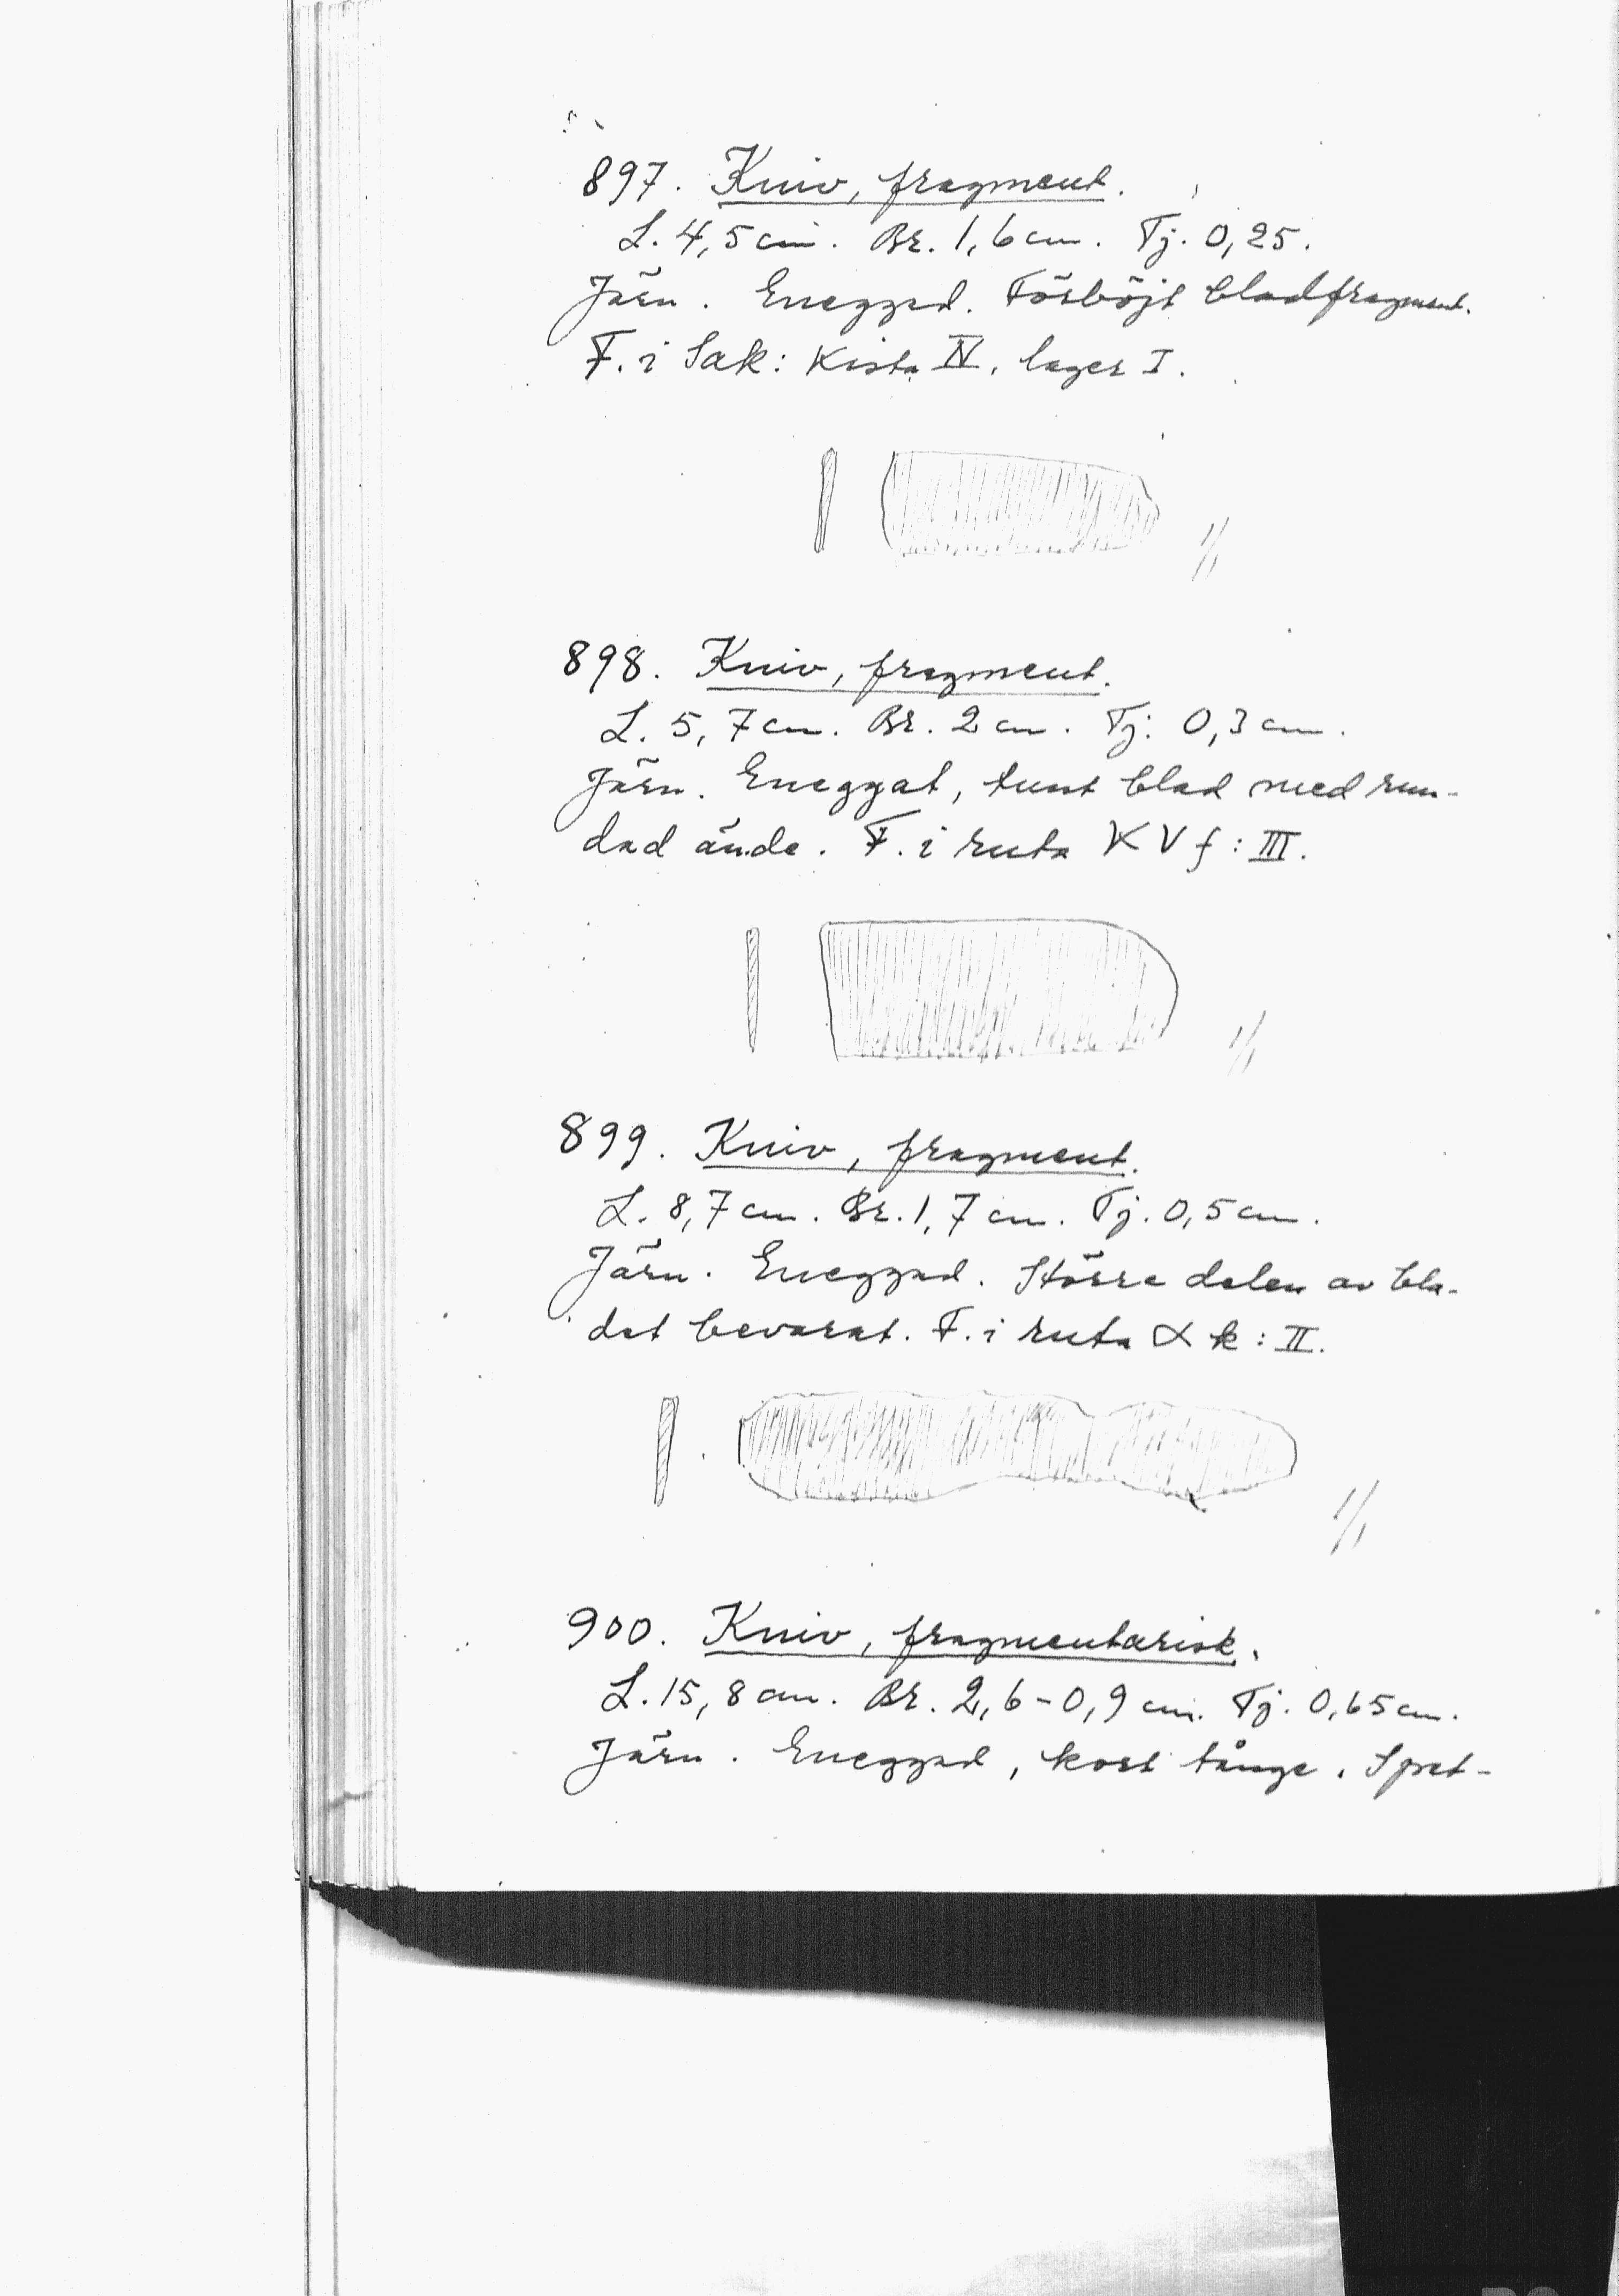 897. Kniv, fragment.
L. 4,5 cm. Br. 1,6 cm. Tj. 0,25.
Järn. Eneggad. Förböjt bladfragment.
F. i Sak: Kista IV, lager I.
1/1
898. Kniv, fragment.
L. 5,7 cm. Br. 2 cm. Tj: 0,3 cm.
Järn. Eneggat, tunt blad med run-
dad ände. F. i ruta K V f : III.
1/1
899. Kniv, fragment.
L. 8,7 cm. Br. 1,7 cm. Tj. 0,5 cm.
Järn. Eneggad. Större delen av bla-
det bevarat. F. i ruta α k : II.
1/1
900. Kniv, fragmentarisk.
L. 15,8 cm. Br. 2,6-0,9 cm. Tj. 0,65 cm.
Järn. Eneggad, kort tånge. Spet-